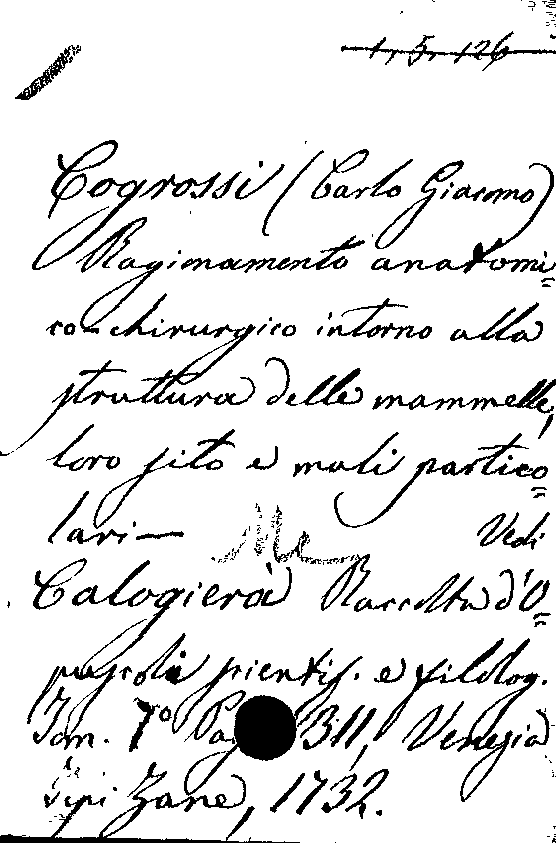 1, 5, 126
Cogrossi (Carlo Giacomo)
Ragionamento anatomi=
co-chirurgico intorno alla
struttura delle mammelle,
loro sito e mali partico=
lari— Vedi
Me
Calogierà Raccolta d'O=
puscoli scientif. e filolog.
Tom. 7º Pag 311, Venezia
Zane, 1732.